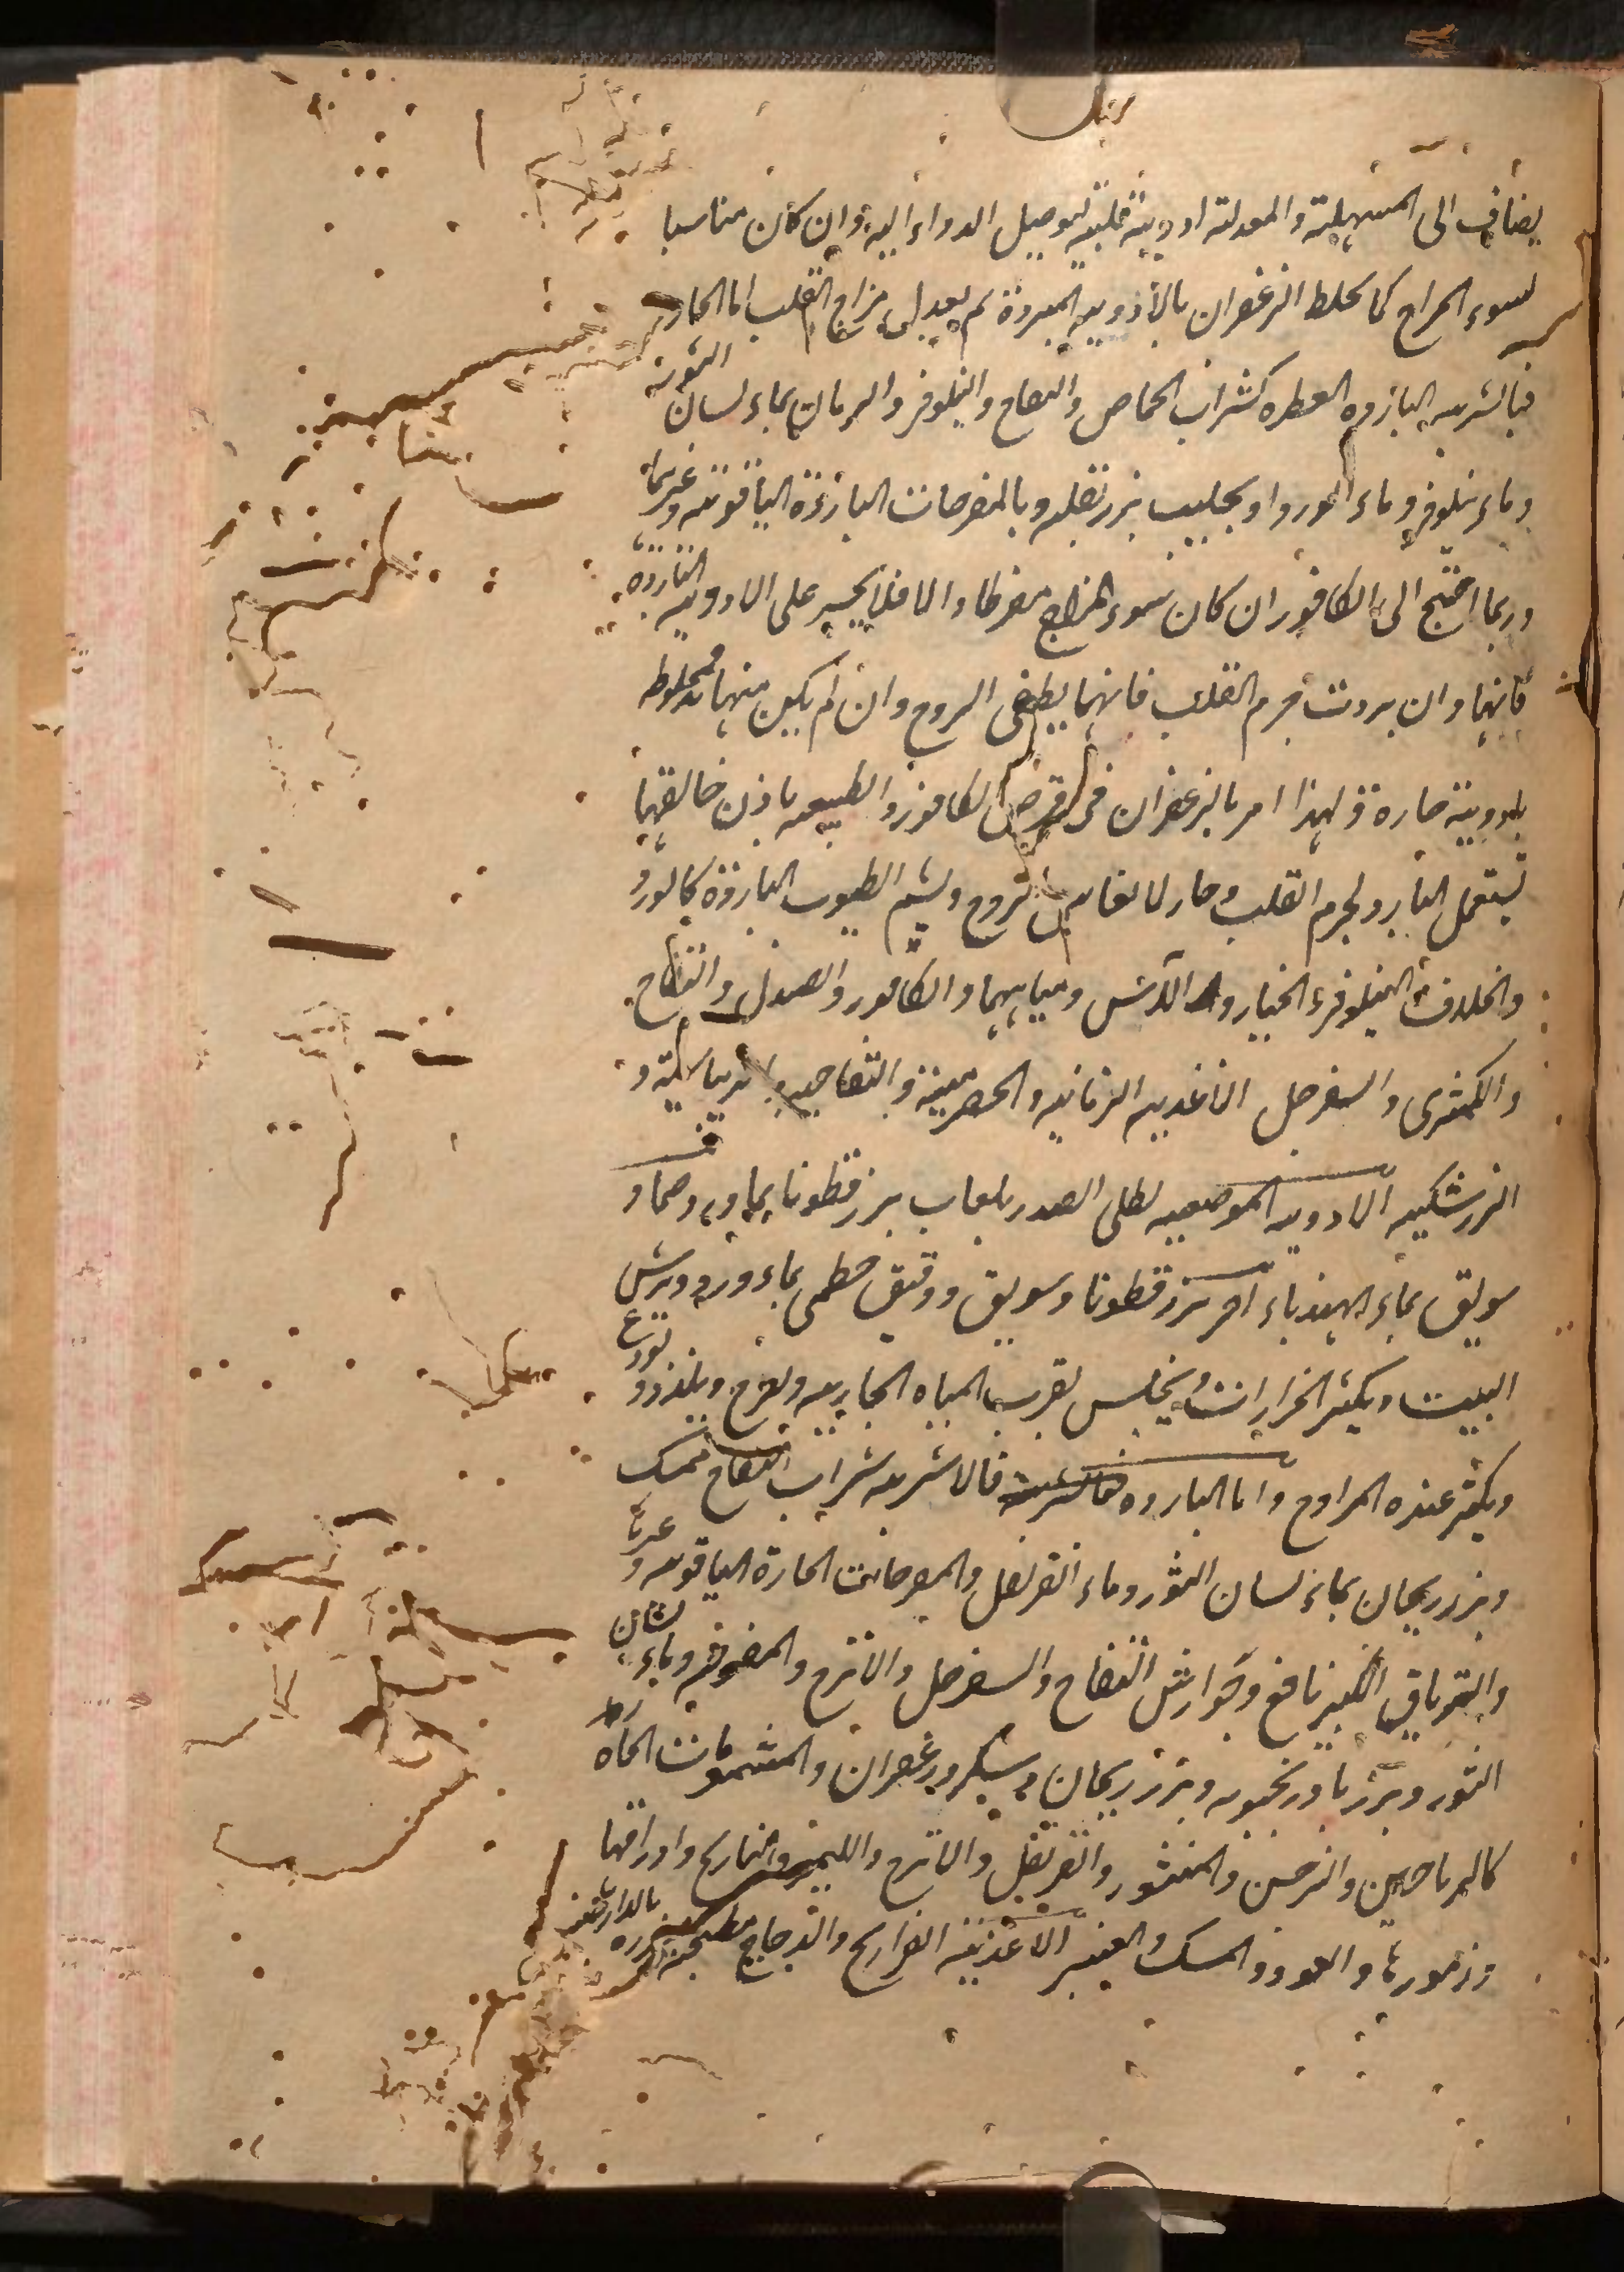 يضاف الى المسهلة والمعدلة ادوية قلبية لتوصيل الدواء اليه وان كان مناسبا
لسوء المزاج كما يخلط الزعفران بالأدوية المبردة ثم يعدل مزاج القلب اما الحار
فبالاشربه الباردة العطره كشراب الحماض والتفاح والنيلوفر والرمان بماء لسان الثور
وماء نيلوفر وماء الورد او بحليب بزر بقله وبالمفرحات الباردة الياقوتيه وغيرها
وربما احتيج الى الكافور ان كان سوء المزاج مفرطا والا فلا يجسر على الادوية الباردة
فانها وان بردت جرم القلب فانها يطفى الروح وان لم يكن منها بد فمخلوطه
بادوية حارة ولهذا امر بالزعفران فى اقراص الكافور والطبيعه باذن خالقها
تستعمل البارد لجرم القلب والحار لانعاش الروح ويشم الطيوب الباردة كالورد
والخلاف النيلوفر والخيار والآس ومياهها والكافور والصندل والتفاح
والكمثرى والسفرجل الاغذيه الرمانيه والحصرمية والتفاحيه والريباسية و
الزرشكيه الادويه الموضعيه يطلى الصدر بلعاب بزر قطونا بماورد وضماد
سويق بماء الهندباء اخر بزر قطونا وسويق ودقيق خطمى بماء ورد ويرش
البيت ويكثر الخرارات ويجلس بقرب المياه الجاريه ويفرح ويلذذ ويودع
ويكثر عنده المراوح واما الباردة فالاشربه شراب التفاح ممسك
وبزر ريحان بماء لسان الثور وماء القرنفل والمفرحات الحارة الياقوتيه وغيرها
والترياق الكبير نافع وجوارش التفاح والسفرجل والاترج وماء لسان
الثور وبزر بادرنجبويه وبزر ريحان وسكر وزعفران والمشمومات الحاره
كالرياحين والنرجس والمنثور والقرنفل والاترج والليمو والنارنج واوراقها
وزهورها والعود والمسك والعنبر الاغذية الفراريج والدجاج مطبخة